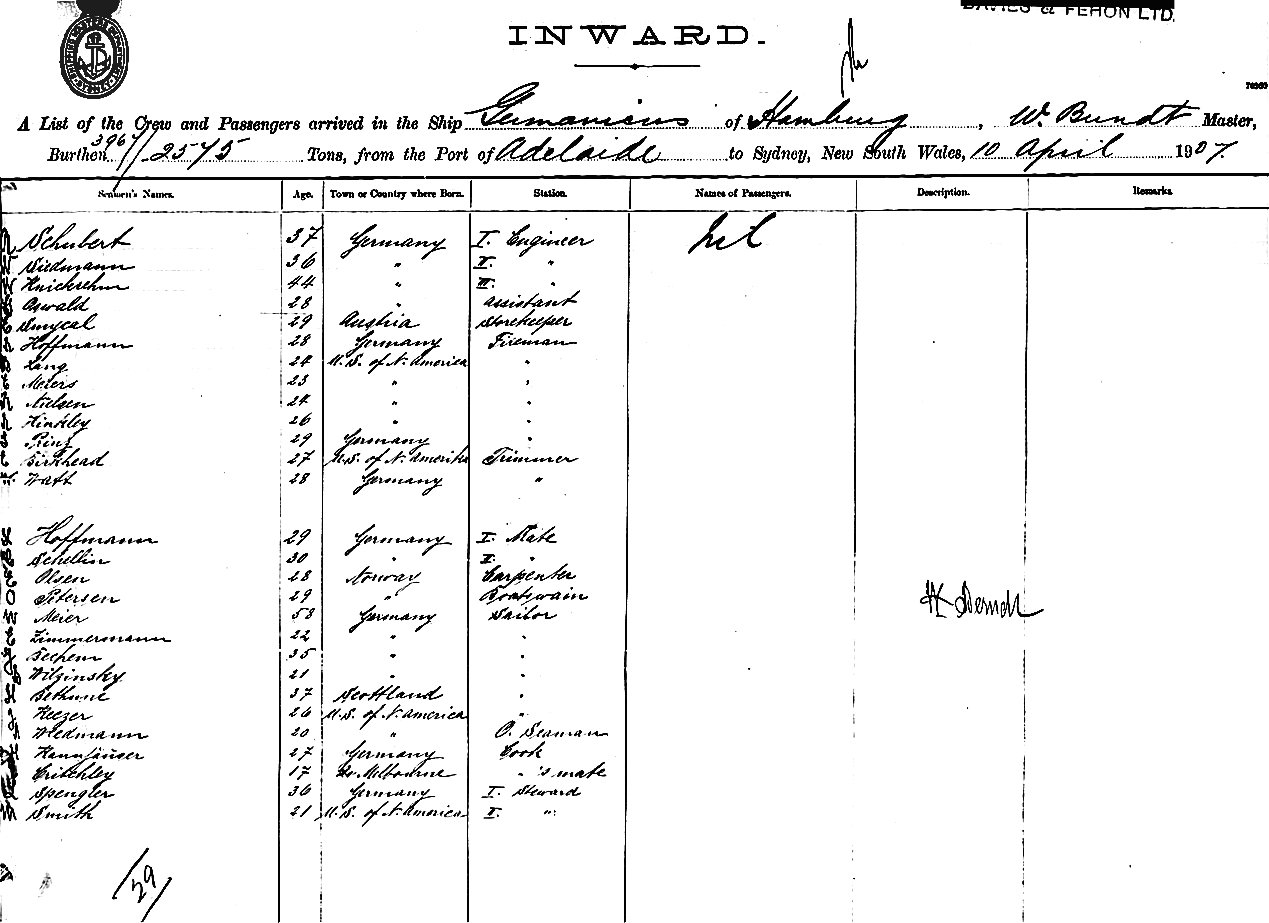 DAVIES & FEHON LTD.
INWARD.
A List of the Crew and Passengers arrived in the Ship Germanicus of Hamburg, W. Bundt Master,
Burthen 3967/2575 Tons, from the Port of Adelaide to Sydney, New South Wales, 10 April 1907.
Seamen's Names. Age. Town or Country where Born. Station. Names of Passengers. Description. Remarks.
Schubert 37 Germany I. Engineer Nil
Siedmann 36 " II. "
Knickrehm 44 " III. "
Oswald 28 " assistant
Smycal 29 Austria Storekeeper
Hoffmann 28 Germany Fireman
Lang 24 U.S. of N. America "
Meiers 23 " "
Nielsen 24 " "
Hinkley 26 " "
Prinz 29 Germany "
Birkhead 27 U.S. of N. amerika Trimmer
Watt 28 Germany "
Hoffmann 29 Germany I. Mate
Schellin 30 " II. "
Olsen 28 Norway Carpenter
Petersen 29 " Boatswain
Meier 53 Germany Sailor
Zimmermann 22 " "
Techem 35 " "
Wilzinsky 21 " "
Bethune 37 Scottland "
Keezer 26 U.S. of N. America "
Wedmann 20 " O. Seaman
Hannhäuser 27 Germany Cook
Critchley 17 Melbourne " 's mate
Spengler 36 Germany I. Steward
Smith 21 U.S. of N. America II. "
29